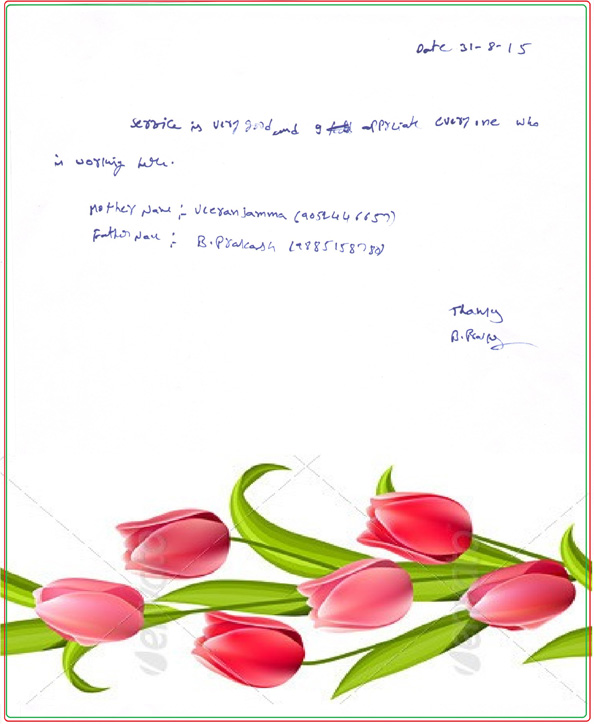 Date 31-8-15
service is very good and I appriciate every one who
is working here.
Mother Name :- Veeranjamma
Father Name :- B. Prakash (9885158780)
Thanks